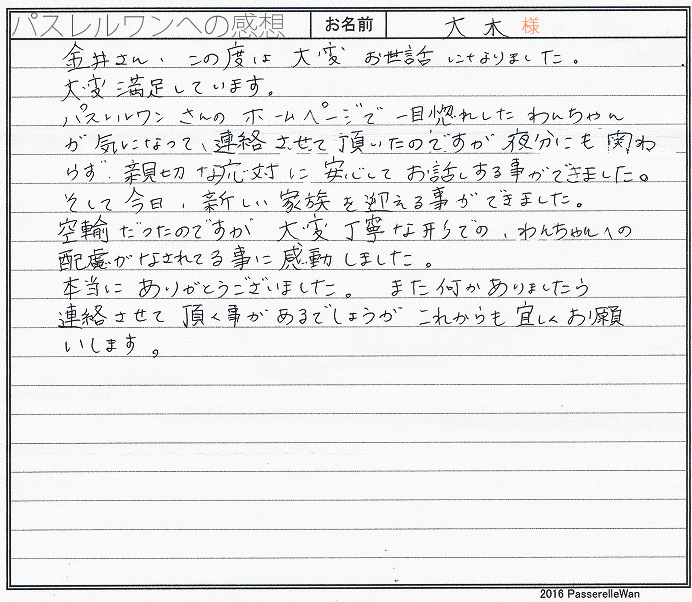 パスレルワンへの感想 お名前 大木 様
金井さん、この度は 大変 お世話になりました。
大変満足しています。
パスレルワンさんの ホームページで 一目惚れしたわんちゃん
が気になって、連絡させて頂いたのですが 夜分にも関わ
らず、親切な応対に 安心してお話しする事ができました。
そして今日、新しい家族を迎える事ができました。
空輸だったのですが 大変丁寧な形での、わんちゃんへの
配慮がなされてる事に感動しました。
本当に ありがとうございました。 また何かありましたら
連絡させて 頂く事があるでしょうが これからも 宜しくお願
いします。
2016 PasserelleWan